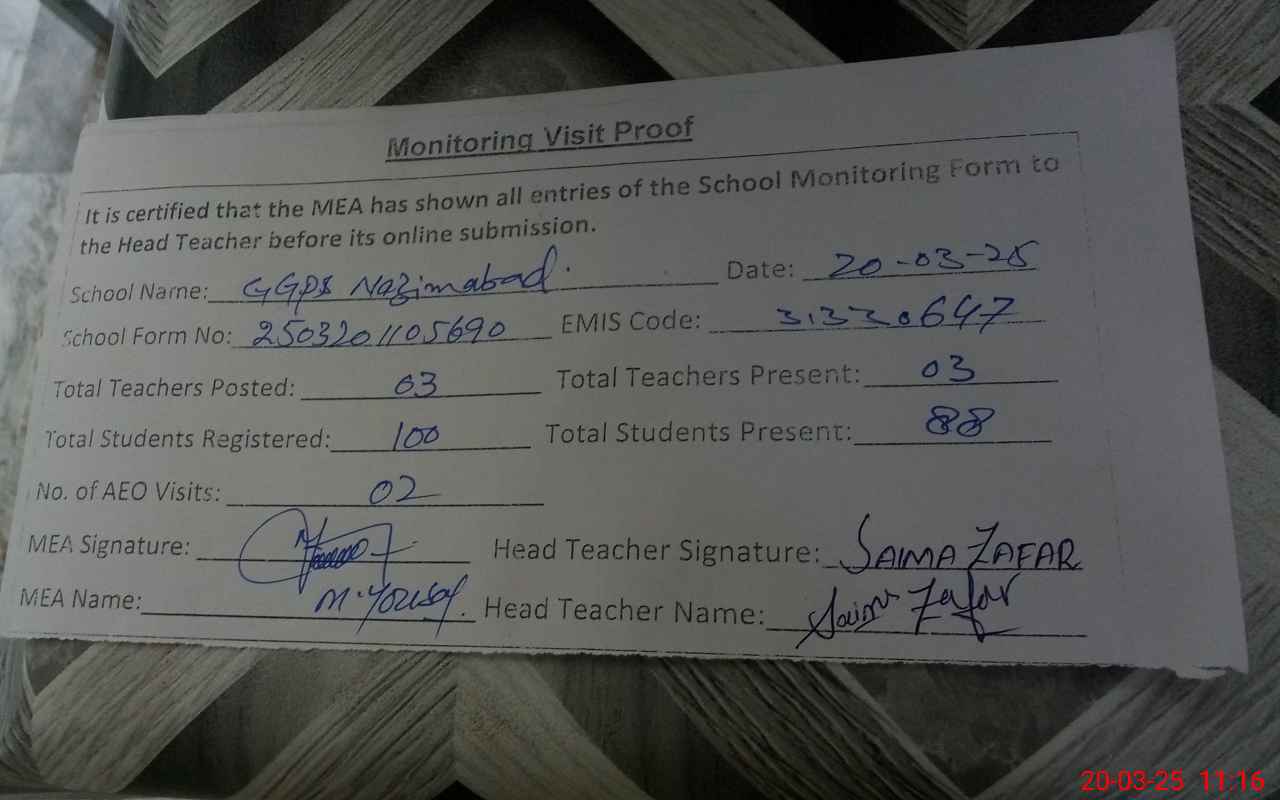 Monitoring Visit Proof
It is certified that the MEA has shown all entries of the School Monitoring Form to
the Head Teacher before its online submission.
School Name: GGPS Nazimabad. Date: 20-03-25
School Form No: 2503201105690 EMIS Code: 31330647
Total Teachers Posted: 03 Total Teachers Present: 03
Total Students Registered: 100 Total Students Present: 88
No. of AEO Visits: 02
MEA Signature: Head Teacher Signature: SAIMA ZAFAR
MEA Name: M. Yousaf. Head Teacher Name: Saima Zafar
20-03-25 11:16